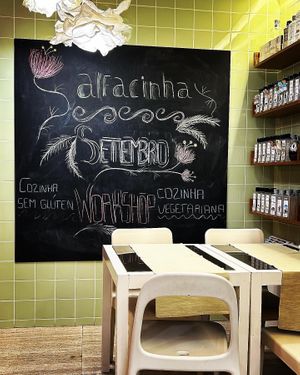 alfacinha
SETEMBRO
WORKSHOP
COZINHA
SEM GLUTEN
COZINHA
VEGETARIANA